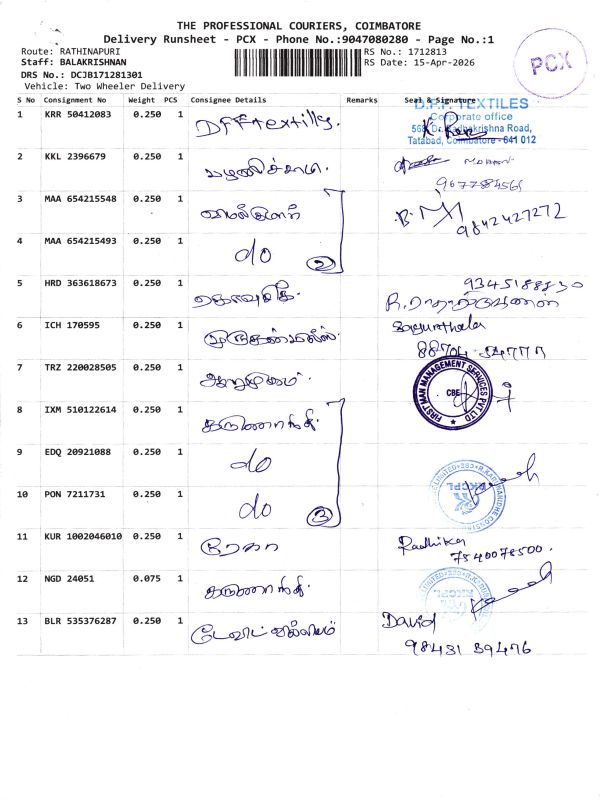 THE PROFESSIONAL COURIERS, COIMBATORE
Delivery Runsheet - PCX - Phone No.:9047080280 - Page No.:1
Route: RATHINAPURI
RS No.: 1712813
Staff: BALAKRISHNAN
RS Date: 15-Apr-2026
DRS No.: DCJB171281301
Vehicle: Two Wheeler Delivery
PCX
S No Consignment No Weight PCS Consignee Details Remarks Seal & Signature
1 KRR 50412083 0.250 1 DFF textilly.
D.F.F. TEXTILES
Corporate office
Krishna Road,
Tatabad, Coimbatore - 641 012
2 KKL 2396679 0.250 1 பழனிச்சாமி.
3 MAA 654215548 0.250 1
9842427272
4 MAA 654215493 0.250 1 do 2
5 HRD 363618673 0.250 1 கௌஷிகி.
6 ICH 170595 0.250 1 முருகன்மில்ஸ்.
7 TRZ 220028505 0.250 1 ஆறுமுகம்.
FIRST MAN MANAGEMENT SERVICES PVT LTD
CBE
8 IXM 510122614 0.250 1 கருணாநிதி.
9 EDQ 20921088 0.250 1 do
10 PON 7211731 0.250 1 do 3
RKGPL
11 KUR 1002046010 0.250 1 Radhika
7540074500.
12 NGD 24051 0.075 1 கருணாநிதி.
RKGPL
13 BLR 535376287 0.250 1 டேவிட் வில்லியம் David
98431 89476